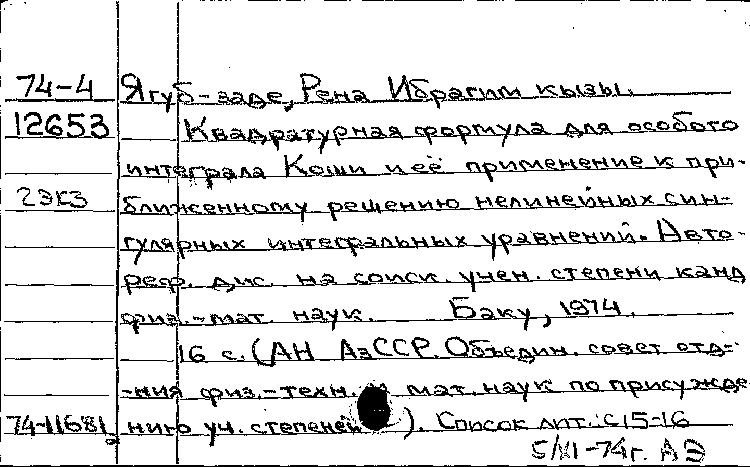 74-4 Ягуб-заде, Рена Ибрагим кызы.
12653 Квадратурная формула для особого
интеграла Коши и её применение к при-
2экз ближенному решению нелинейных син-
гулярных интегральных уравнений. Авто-
реф. дис. на соиск. учен. степени канд
физ.-мат. наук. Баку, 1974.
16 с. (АН АзССР. Объедин. совет отд-
-ния физ.-техн. и мат. наук по присужде
74-11681 нию уч. степеней ). Список лит.: с 15-16
5/XI-74г. АЭ